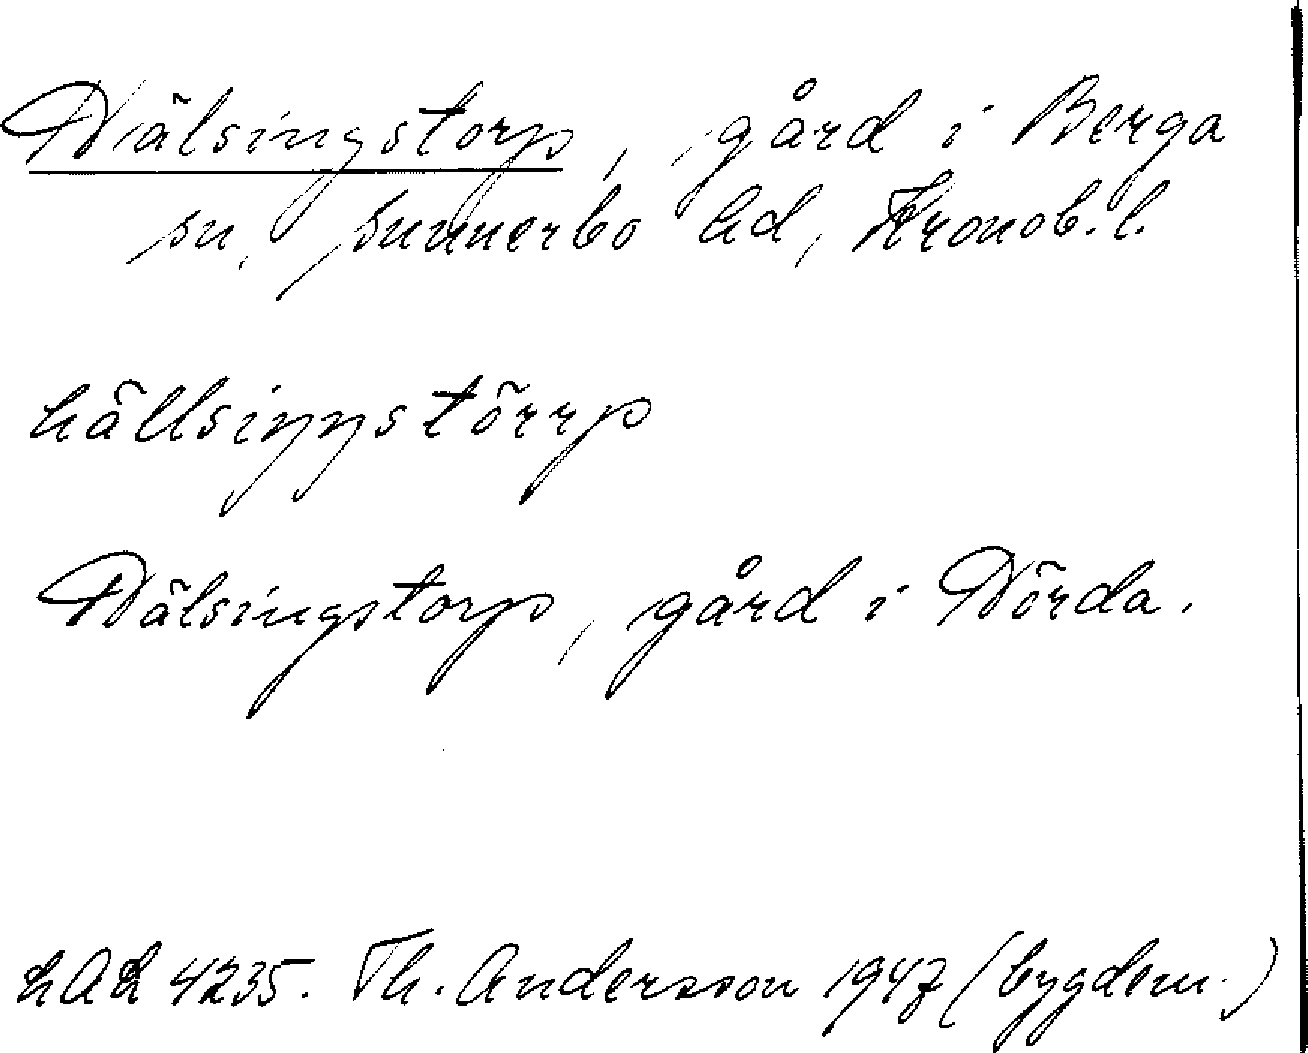 Hälsingstorp, gård i Berga
sn, Sunnerbo hd, Kronob. l.
hällsiŋŋstörrp
Hälsingstorp, gård i Hörda.
LAL 4235. Th. Andersson 1947 (bygdem.)